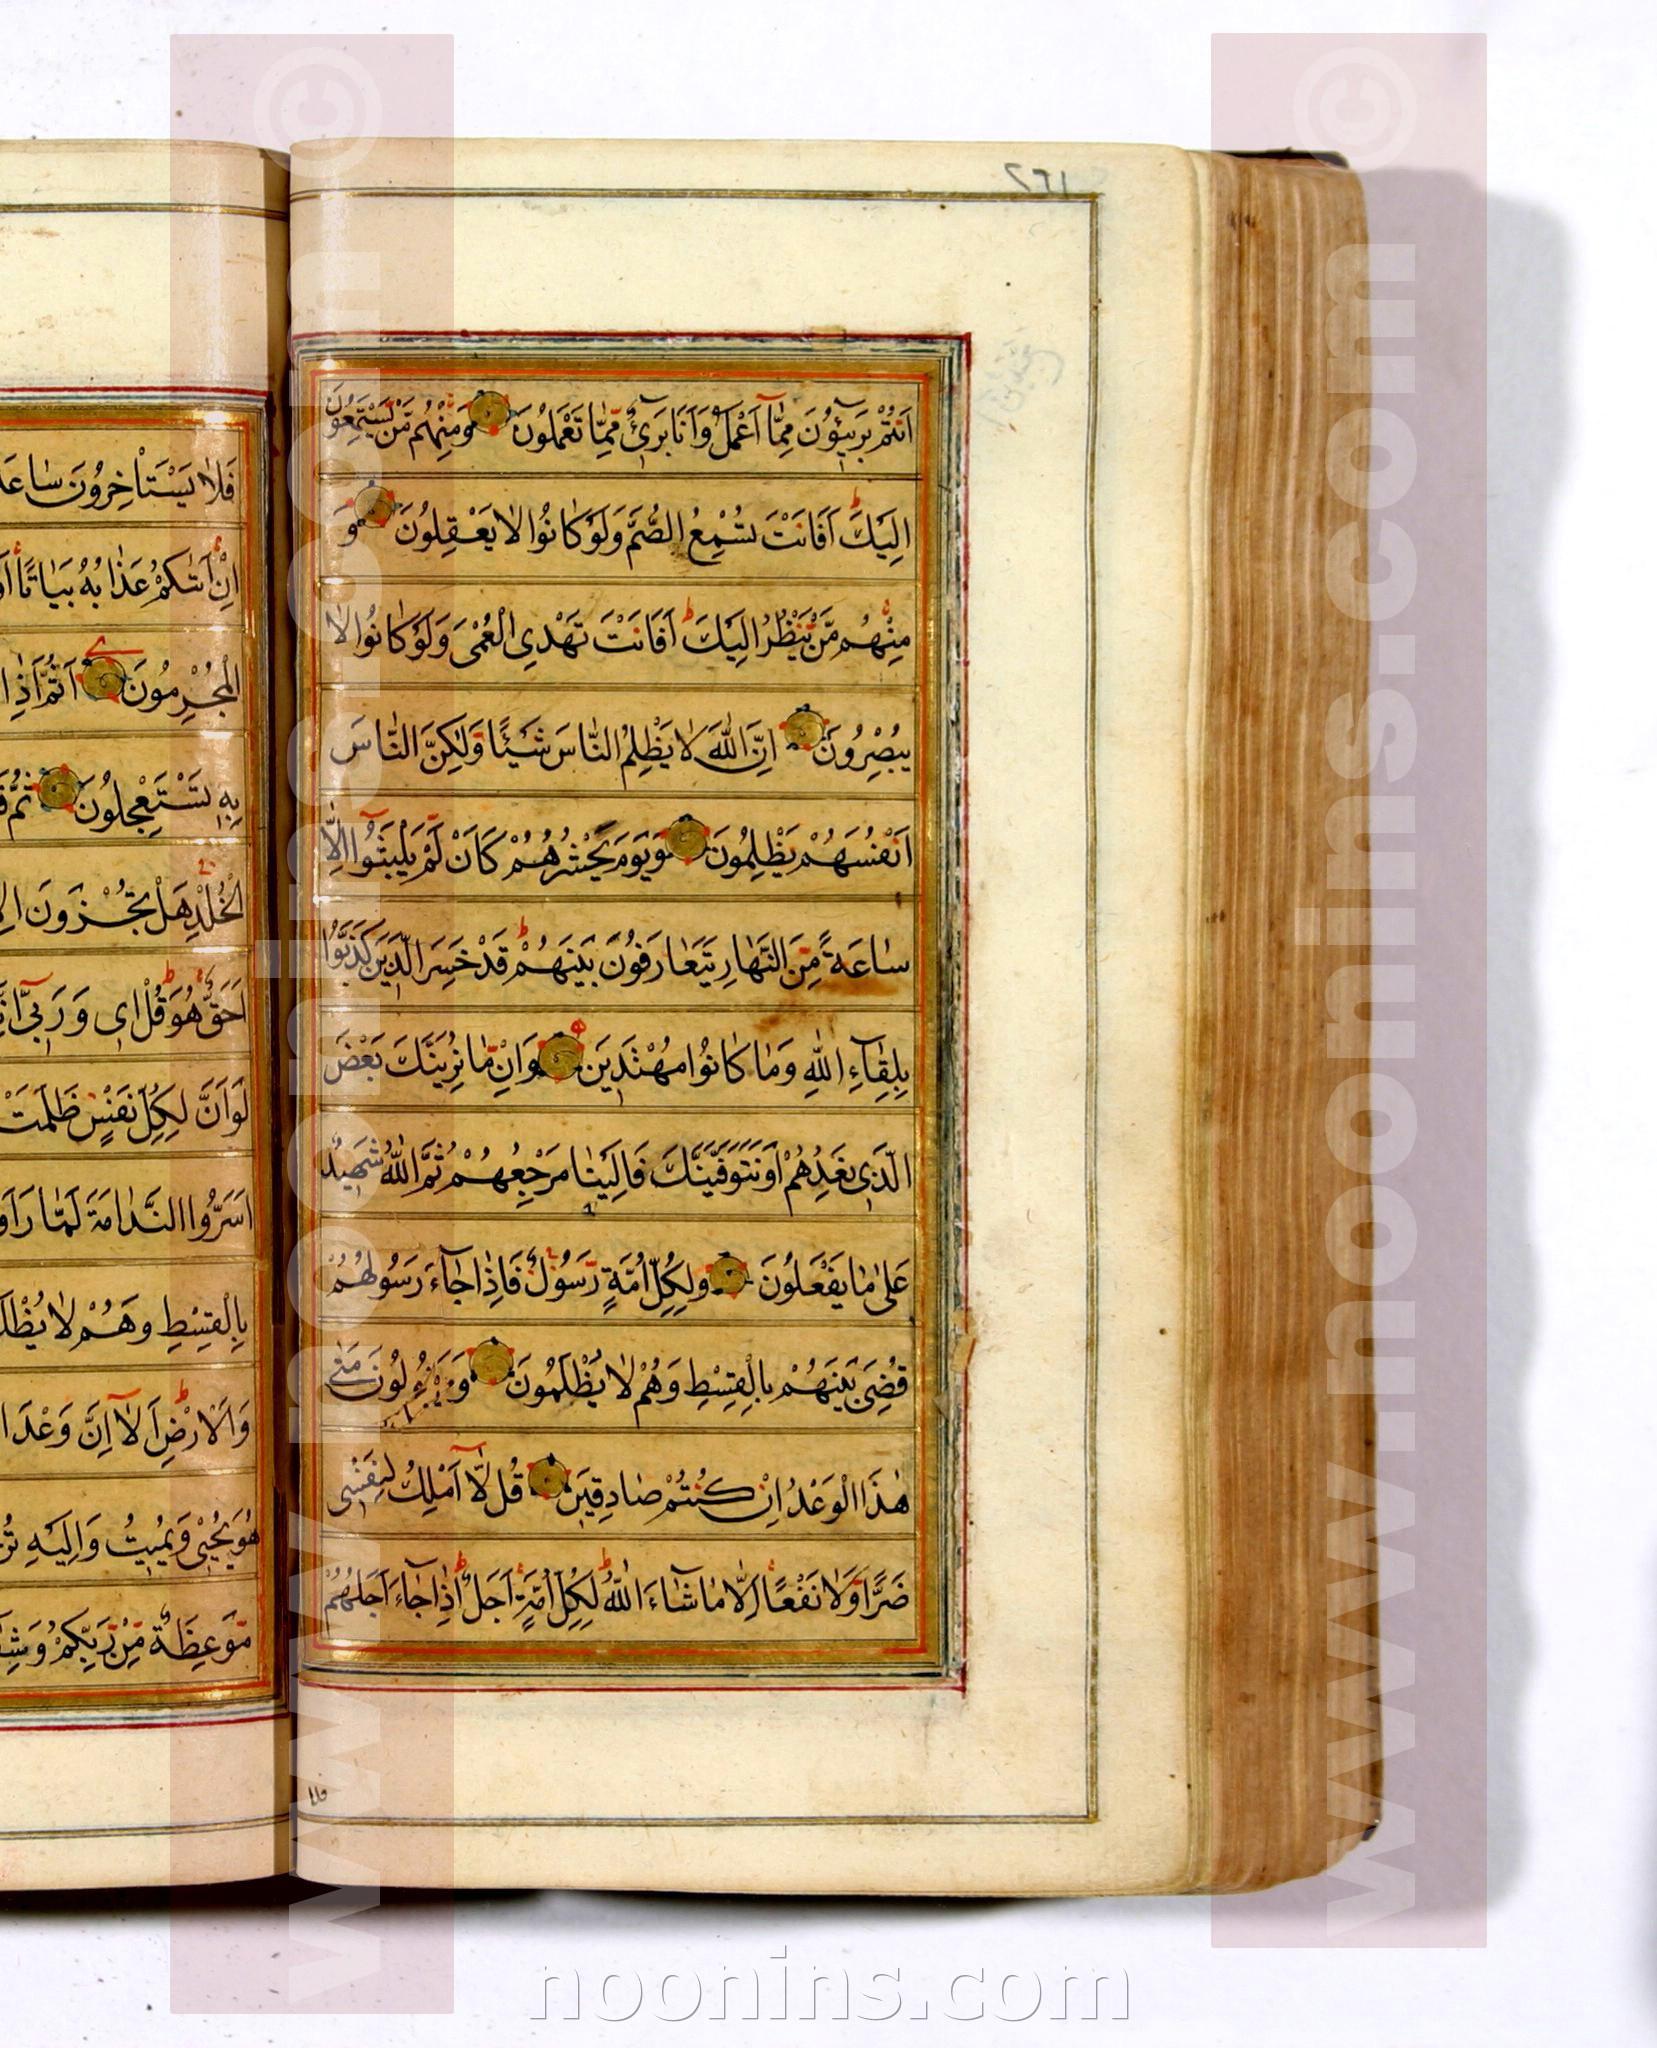 ٢٦١
اَنْتُمْ بَرِيئُونَ مِمَّا اَعْمَلُ وَاَنَا بَرِئٌ مِمَّا تَعْمَلُونَ وَمِنْهُمْ مَنْ يَسْتَمِعُونَ
اِلَيْكَ اَفَاَنْتَ تُسْمِعُ الصُّمَّ وَلَوْ كَانُوا لَا يَعْقِلُونَ وَ
مِنْهُمْ مَنْ يَنْظُرُ اِلَيْكَ اَفَاَنْتَ تَهْدِي الْعُمْىَ وَلَوْ كَانُوا لَا
يُبْصِرُونَ اِنَّ اللّٰهَ لَا يَظْلِمُ النَّاسَ شَيْئًا وَلٰكِنَّ النَّاسَ
اَنْفُسَهُمْ يَظْلِمُونَ وَيَوْمَ يَحْشُرُهُمْ كَاَنْ لَمْ يَلْبَثُوا اِلَّا
سَاعَةً مِنَ النَّهَارِ يَتَعَارَفُونَ بَيْنَهُمْ قَدْ خَسِرَ الَّذِينَ كَذَّبُوا
بِلِقَاءِ اللّٰهِ وَمَا كَانُوا مُهْتَدِينَ وَاِنْ مَا نُرِيَنَّكَ بَعْضَ
الَّذِي نَعِدُهُمْ اَوْ نَتَوَفَّيَنَّكَ فَاِلَيْنَا مَرْجِعُهُمْ ثُمَّ اللّٰهُ شَهِيدٌ
عَلٰى مَا يَفْعَلُونَ وَلِكُلِّ اُمَّةٍ رَسُولٌ فَاِذَا جَاءَ رَسُولُهُمْ
قُضِىَ بَيْنَهُمْ بِالْقِسْطِ وَهُمْ لَا يُظْلَمُونَ وَيَقُولُونَ مَتٰى
هٰذَا الْوَعْدُ اِنْ كُنْتُمْ صَادِقِينَ قُلْ لَا اَمْلِكُ لِنَفْسِى
ضَرًّا وَلَا نَفْعًا اِلَّا مَا شَاءَ اللّٰهُ لِكُلِّ اُمَّةٍ اَجَلٌ اِذَا جَاءَ اَجَلُهُمْ
فلا
فَلَا يَسْتَاْخِرُونَ سَاعَةً
اِنْ اَتٰيكُمْ عَذَابُهُ بَيَاتًا اَوْ
الْمُجْرِمُونَ اَثُمَّ اِذَا
بِهِ تَسْتَعْجِلُونَ ثُمَّ
الْخُلْدِ هَلْ تُجْزَوْنَ اِلَّا
اَحَقٌّ هُوَ قُلْ اِى وَرَبِّى
لَوْ اَنَّ لِكُلِّ نَفْسٍ ظَلَمَتْ
اَسَرُّوا النَّدَامَةَ لَمَّا رَاَوُا
بِالْقِسْطِ وَهُمْ لَا يُظْلَ
وَالْاَرْضِ اَلَا اِنَّ وَعْدَ ا
هُوَ يُحْيِى وَيُمِيتُ وَاِلَيْهِ
مَوْعِظَةٌ مِنْ رَبِّكُمْ وَشِفَ
www.noonins.com ©
www.noonins.com ©
noonins.com